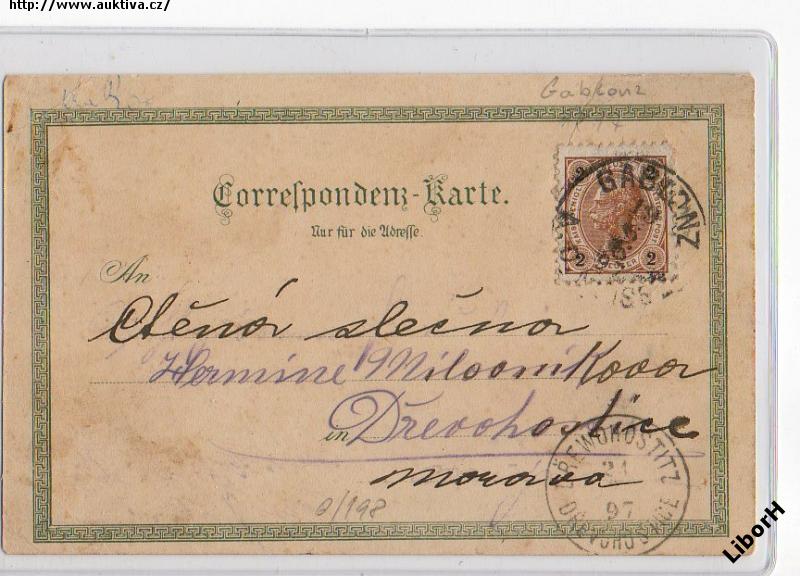 http://www.auktiva.cz/
Gablonz
Correspondenz-Karte.
Nur für die Adresse.
2 2
2 2
GABLONZ
An
Ctěná slečna
Hermine
in Dřevohostice
Morava
DŘEWOHOSTITZ
21
97
DŘEVOHOSTICE
0/198
LiborH